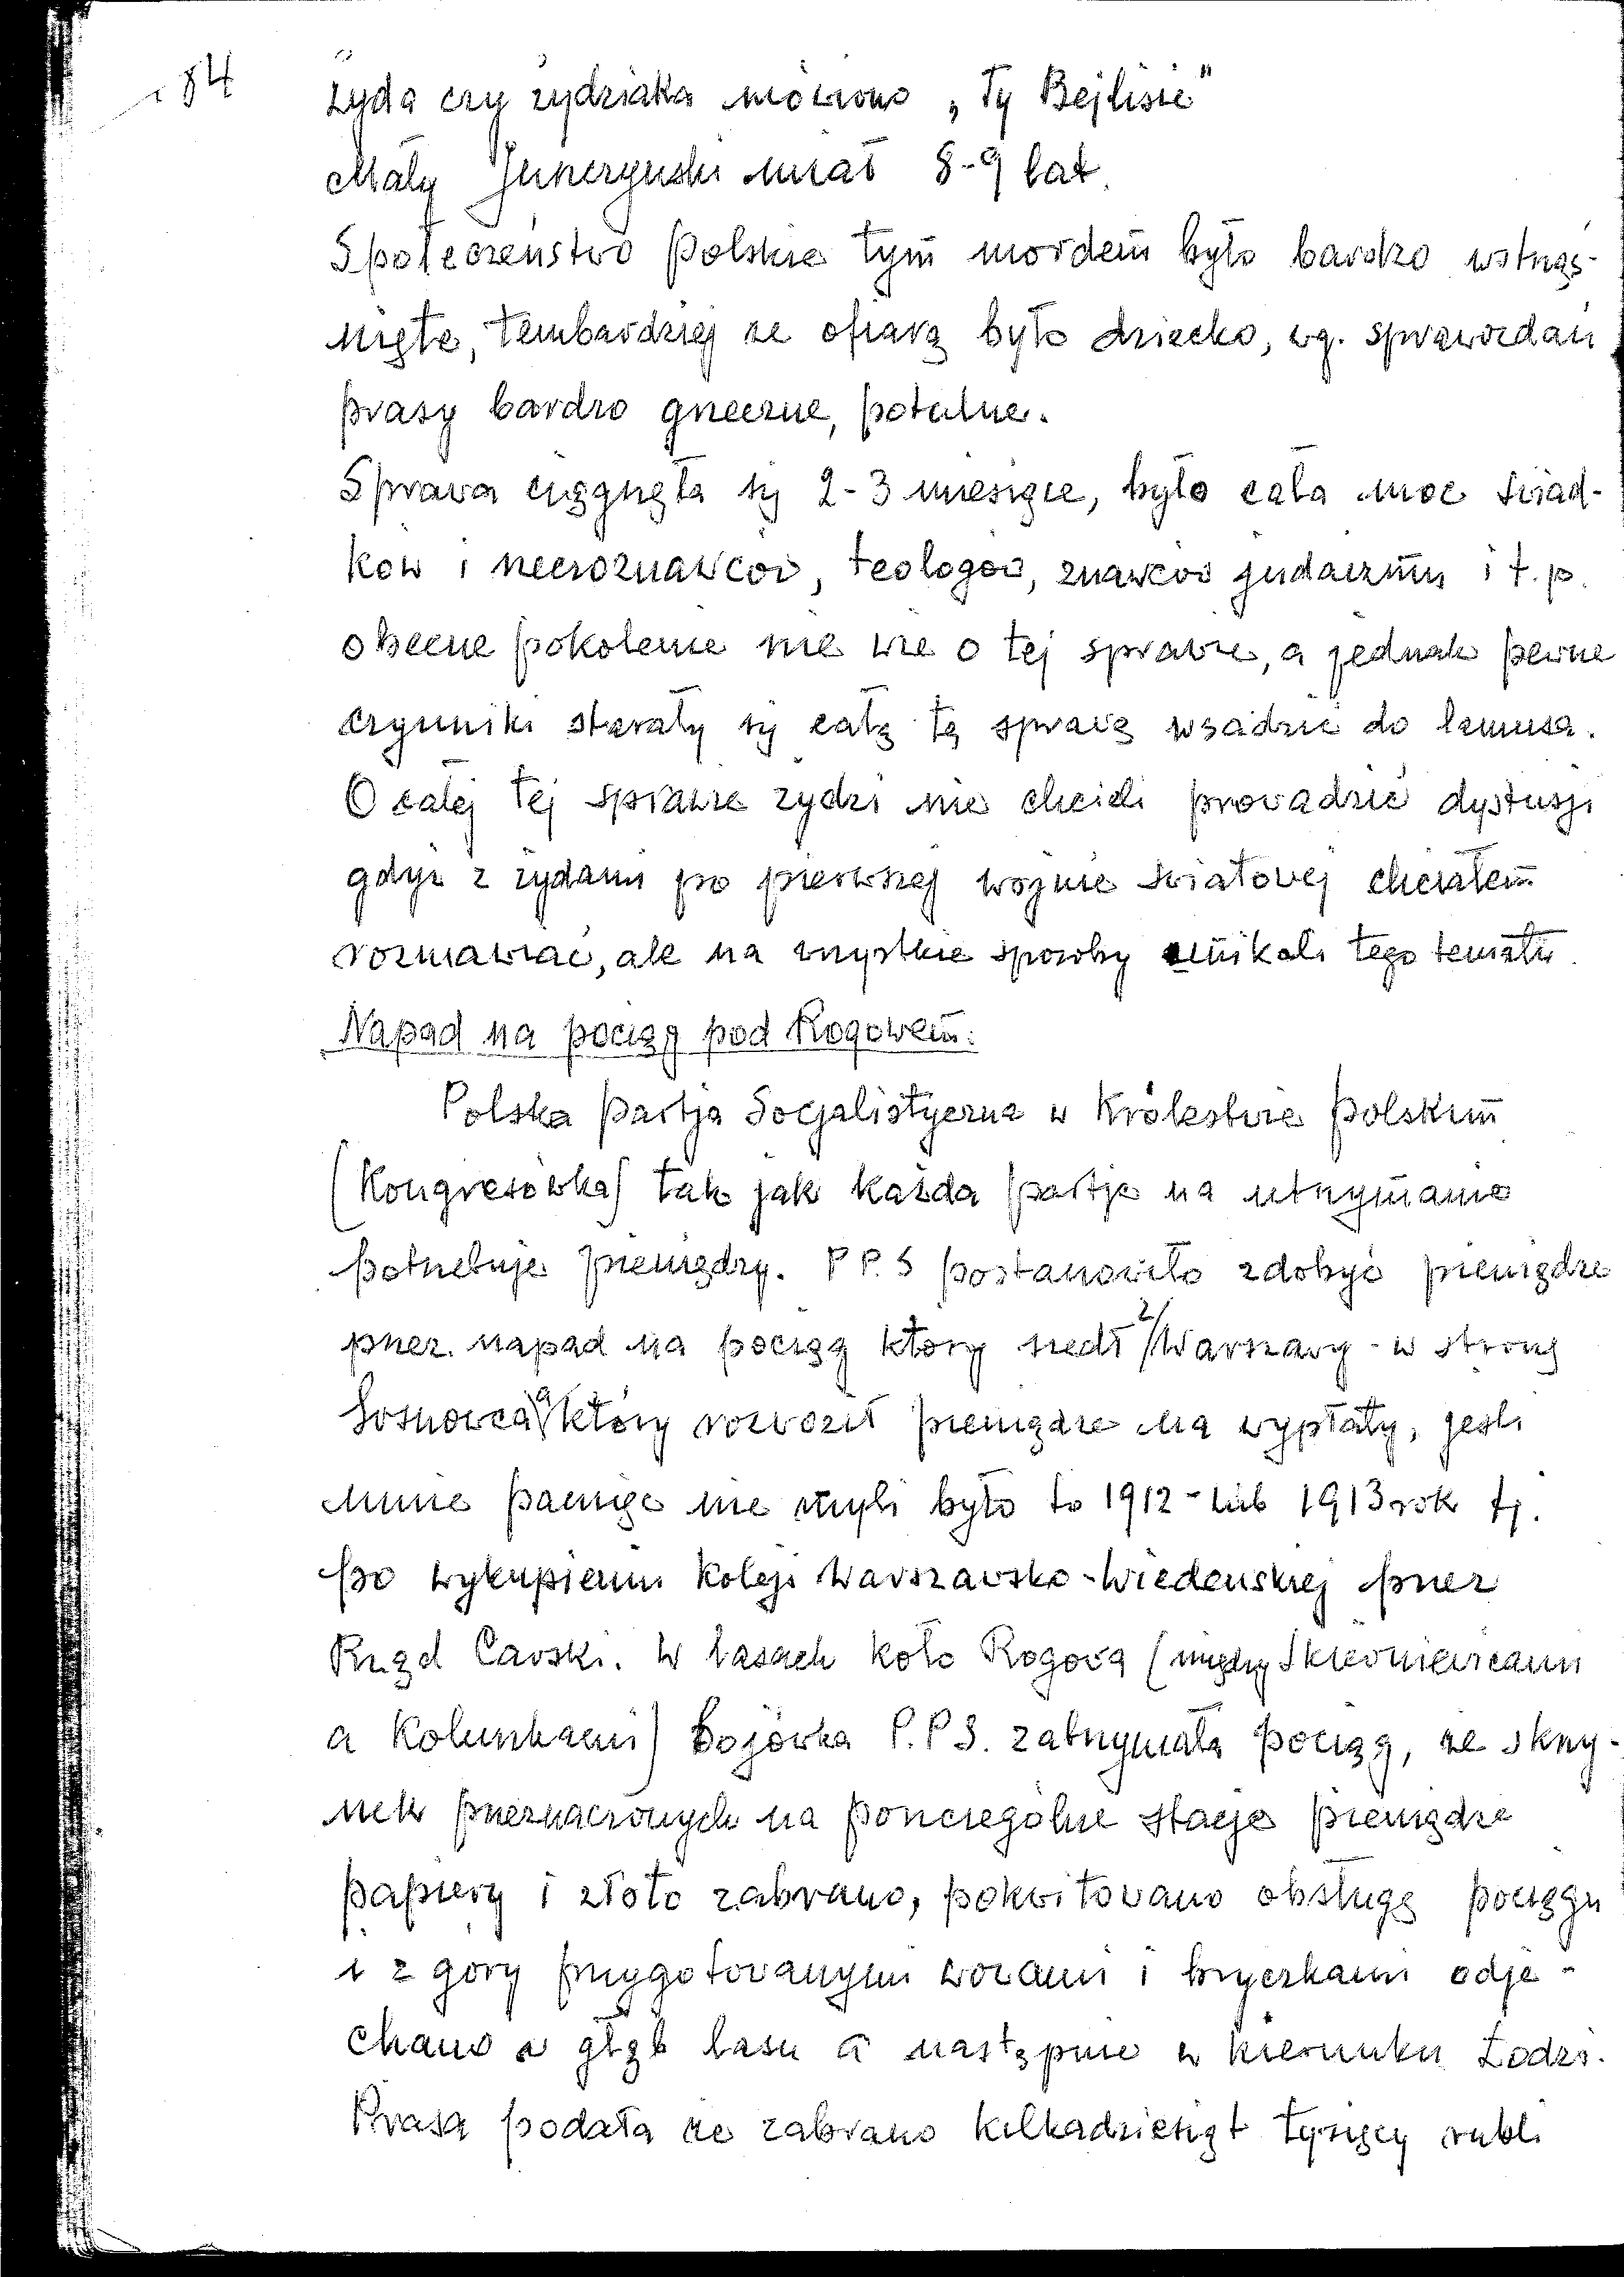 184
żyda czy żydziaka mówiono „Ty Bejlisie"
Mały Juszczyński miał 8-9 lat.
Społeczeństwo Polskie tym mordem było bardzo wstrząś-
nięte, tembardziej że ofiarą było dziecko, wg. sprawozdań
prasy bardzo grzeczne, potulne.
Sprawa ciągnęła się 2-3 miesiące, było cała moc świad-
ków i rzeczoznawców, teologów, znawców judaizmu i t.p.
obecne pokolenie nie wie o tej sprawie, a jednak pewne
czynniki starały się całą tą sprawą wsadzić do lamusa.
O całej tej sprawie żydzi nie chcieli prowadzić dyskusji
gdyż z żydami po pierwszej wojnie światowej chciałem
rozmawiać, ale na wszystkie sposoby unikali tego tematu.
Napad na pociąg pod Rogowem:
Polska Partja Socjalistyczna w Królestwie Polskim
(Kongresówka) tak jak każda partja na utrzymanie
potrzebuje pieniędzy. P P. S postanowiło zdobyć pieniądze
przez napad na pociąg który szedł z/Warszawy - w stronę
Sosnowca a który rozwoził pieniądze na wypłaty, jeśli
mnie pamięć nie myli było to 1912 - lub 1913 rok tj.
po wykupieniu Koleji Warszawsko-Wiedeńskiej przez
Rząd Carski. W lasach koło Rogowa (między Skierniewicami
a Koluszkami) Bojówka P.P S. zatrzymała pociąg, ze skrzy-
nek przeznaczonych na poszczególne stacje pieniądze
papiery i złoto zabrano, pokwitowano obsługę pociągu
i z góry przygotowanymi wozami i bryczkami odje-
chano w głąb lasu a następnie w kierunku Łodzi.
Prasa podała że zabrano kilkadziesiąt tysięcy rubli